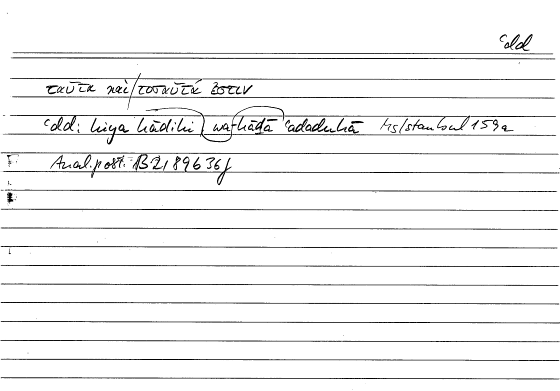 ʿdd
ταῦτα καὶ/τοσαῦτά ἐστιν
ʿdd: hiya hāḏihi wa-hāḏā ʿadaduhā Hs Istanbul 159a
Anal. post. B 2189636f